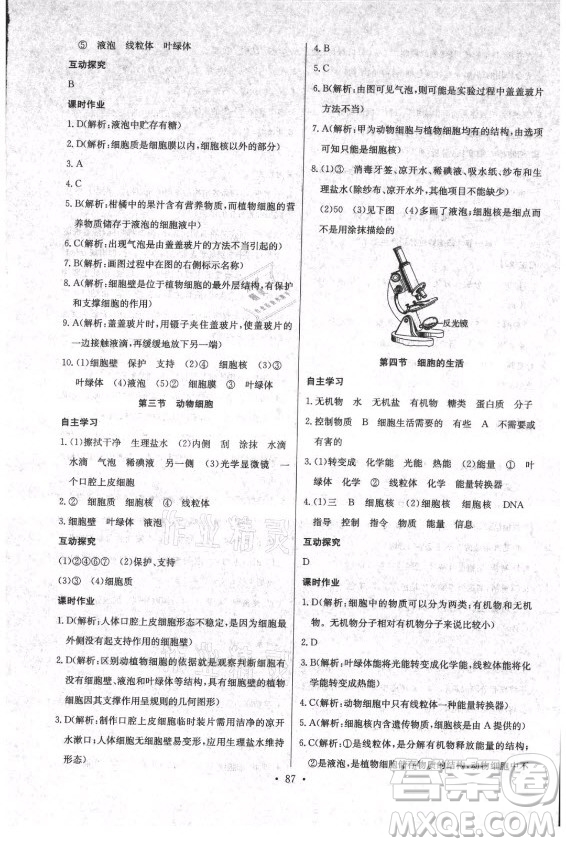 ⑤　液泡　线粒体　叶绿体
互动探究
B
课时作业
1. D(解析:液泡中贮存有糖)
2. D(解析:细胞质是细胞膜以内、细胞核以外的部分)
3. A
4. C
5. B(解析:柑橘中的果汁含有营养物质,而植物细胞的营
养物质储存于液泡的细胞液中)
6. C(解析:出现气泡是由盖盖玻片的方法不当引起的)
7. B(解析:画图过程中在图的右侧标示名称)
8. D(解析:细胞壁是位于植物细胞的最外层结构,有保护
和支撑细胞的作用)
9. A(解析:盖盖玻片时,用镊子夹住盖玻片,使盖玻片的
一边接触液滴,再缓缓地放下另一端)
10. (1)细胞壁　保护　支持　(2)④　细胞核　(3)③
叶绿体　(4)⑤　液泡　(5)②　细胞膜
第三节　动物细胞
自主学习
1. (1)擦拭干净　生理盐水　(2)内侧　刮　涂抹　水滴
水滴　气泡　稀碘液　另一侧　(3)光学显微镜　一
个口腔上皮细胞
2. ②　细胞质　细胞核　④　线粒体
3. 细胞壁　叶绿体　液泡
互动探究
(1)②④⑥⑦　(2)保护、支持
(3)③　④　细胞质
课时作业
1. D(解析:人体口腔上皮细胞形态不稳定,是因为动物细
胞没有起支持作用的细胞壁)
2. D(解析:区别动植物细胞的依据就是观察判断有无细胞
壁、液泡和叶绿体等结构,而植物细胞由于有细胞壁的
支撑作用而呈规则的几何图形)
3. D(解析:制作口腔上皮细胞临时装片需用洁净的凉开
水漱口;动物细胞无细胞壁易变形,应用生理盐水维持
形态)
4. B
5. C
6. B(解析:由图可见气泡,则可能是实验过程中盖盖玻片
方法不当)
7. A(解析:甲为动物细胞与植物细胞均有的结构,由选项
可知只能是细胞核)
8. (1)③　消毒牙签、凉开水、稀碘液、吸水纸、纱布、生
理盐水(除纱布、凉开水外,其他项目不能缺少)
(2)50　(3)见下图　(4)多画了液泡;细胞质和细胞核
不是用涂抹描绘的
反光镜
第四节　细胞的生活
自主学习
1. 无机物　水　无机盐　有机物　糖类　蛋白质　分子
2. 控制物质　B　A　细胞生活需要的　C　不需要或
有害的
3. (1)转变成　化学能　能源　(2)能量　①　叶
绿体　化学　②　化学能　能量转换器
4. (1)三　B　细胞核　细胞核　DNA
指导　控制　指令　物质　能量　信息
互动探究
D
课时作业
1. D(解析:细胞中的物质可以分为两类:有机物和无机
物。无机物分子相对有机物分子来说比较小)
2. D
3. B(解析:叶绿体能将光能转变成化学能,线粒体能将化
学能转变成能量)
4. B(解析:动物细胞中只有线粒体一种能量转换器)
5. A(解析:细胞核内含遗传物质,细胞核是由 A 提供的)
6. C(解析:①是线粒体,分解有机物释放能量的结构;
②是液泡,是植物细胞储存物质的结构,动物细胞中不
· 87 ·